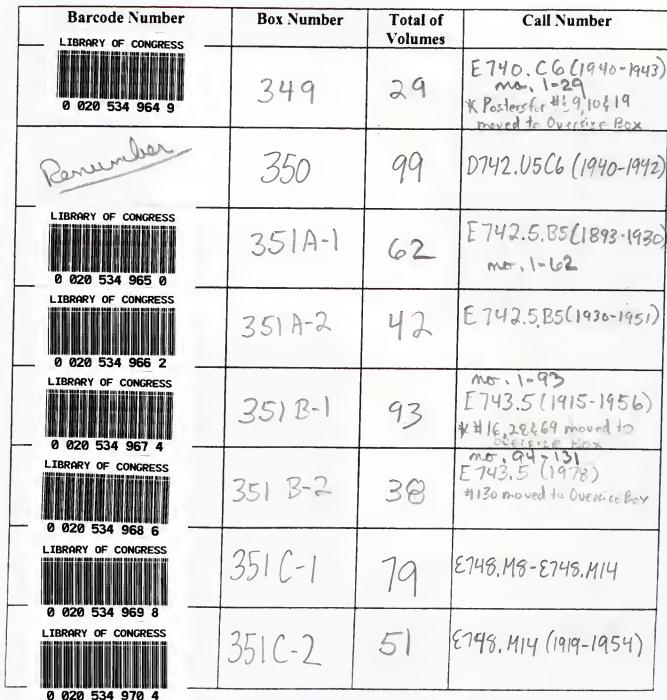 Barcode Number
Box Number
Total of
Volumes
Call Number
LIBRARY OF CONGRESS
0 020 534 964 9
349
29
E740.C6 (1940-1943)
no. 1-29
* Posters for #s 9, 10 & 19
moved to Oversize Box
Renumber
350
99
D742.U5C6 (1940-1942)
LIBRARY OF CONGRESS
0 020 534 965 0
351A-1
62
E742.5.B5(1893-1930)
no. 1-62
LIBRARY OF CONGRESS
0 020 534 966 2
351 A-2
42
E742.5.B5(1930-1951)
LIBRARY OF CONGRESS
0 020 534 967 4
351 B-1
93
no. 1-93
E743.5 (1915-1956)
* #16, 28 & 69 moved to
oversize Box
LIBRARY OF CONGRESS
0 020 534 968 6
351 B-2
38
no. 94-131
E743.5 (1978)
#130 moved to Oversize Box
LIBRARY OF CONGRESS
0 020 534 969 8
351 C-1
79
E748.M8-E748.M14
LIBRARY OF CONGRESS
0 020 534 970 4
351C-2
51
E748.M14 (1919-1954)